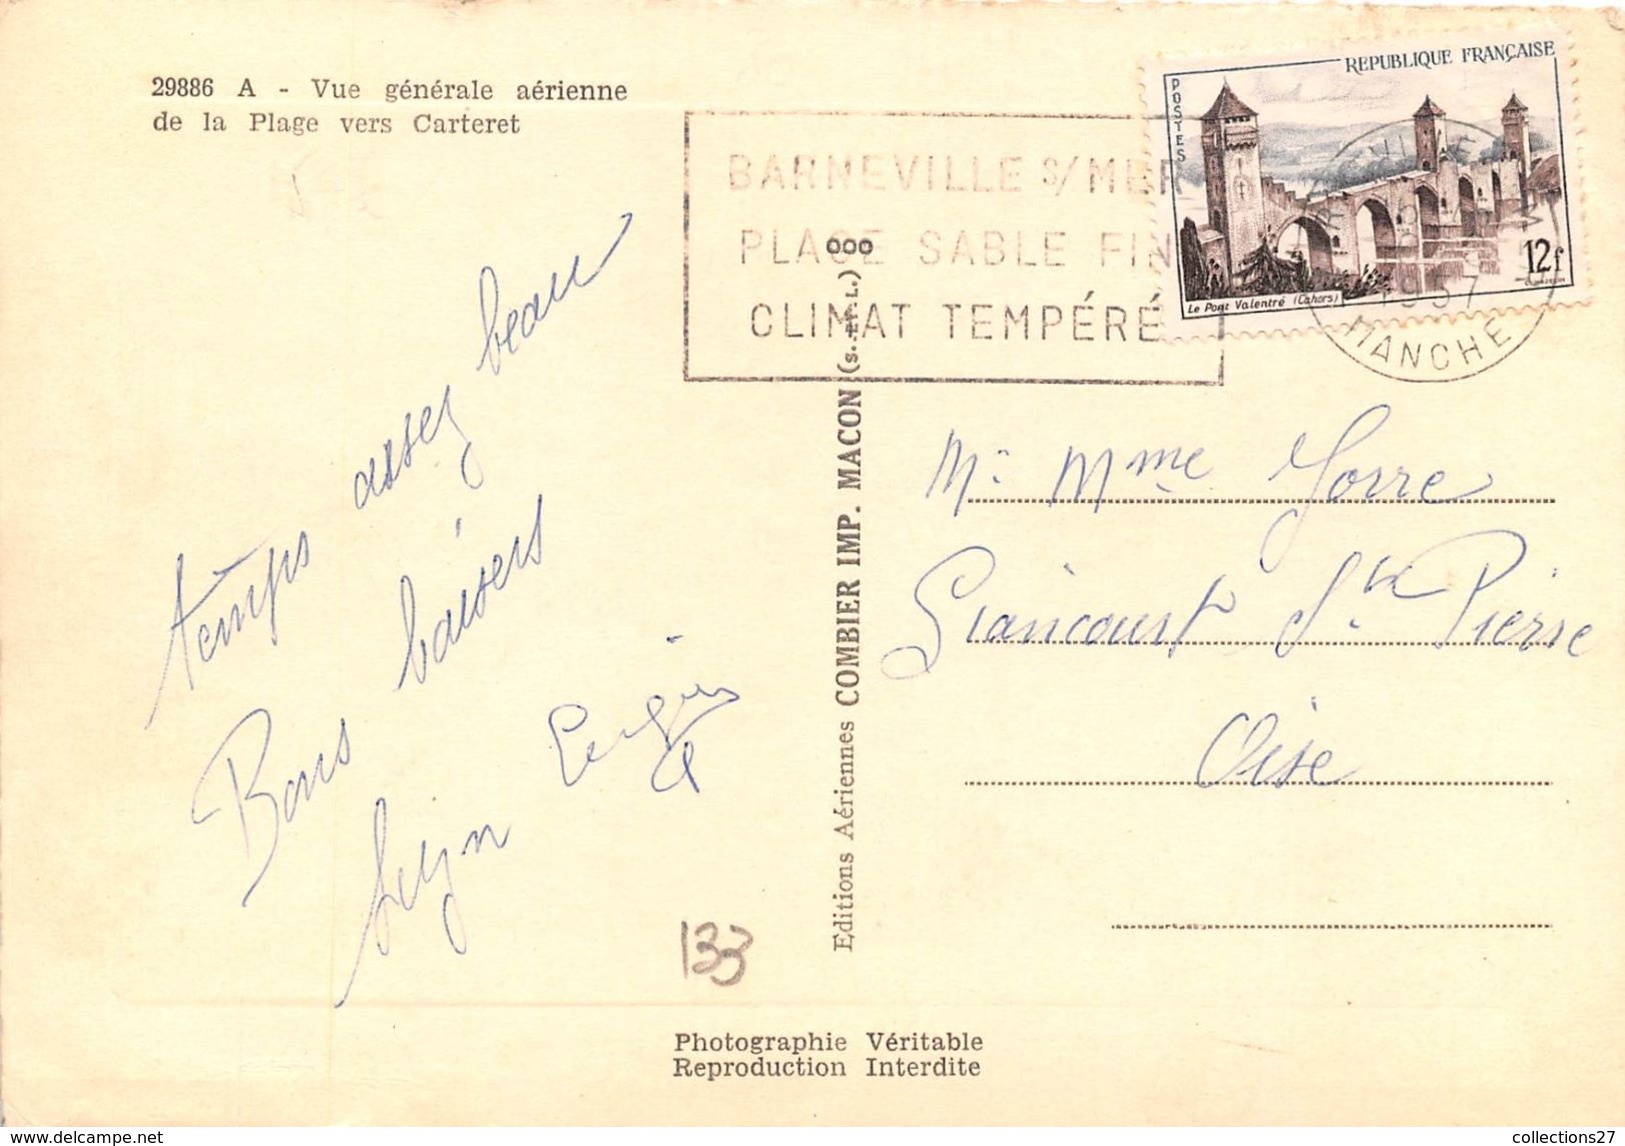 29886 A - Vue générale aérienne
de la Plage vers Carteret
BARNEVILLE S/ MER
PLAGE SABLE FIN
CLIMAT TEMPÉRÉ
REPUBLIQUE FRANÇAISE
POSTES
12f
Le Pont Valentré (Cahors)
1957
MANCHE
temps assez beau
Bons baisers
Mr Mme Gorre
Liancourt St Pierre
Oise
Editions Aériennes COMBIER IMP. MACON (S. ET L.) ooo
133
Photographie Véritable
Reproduction Interdite
collections27